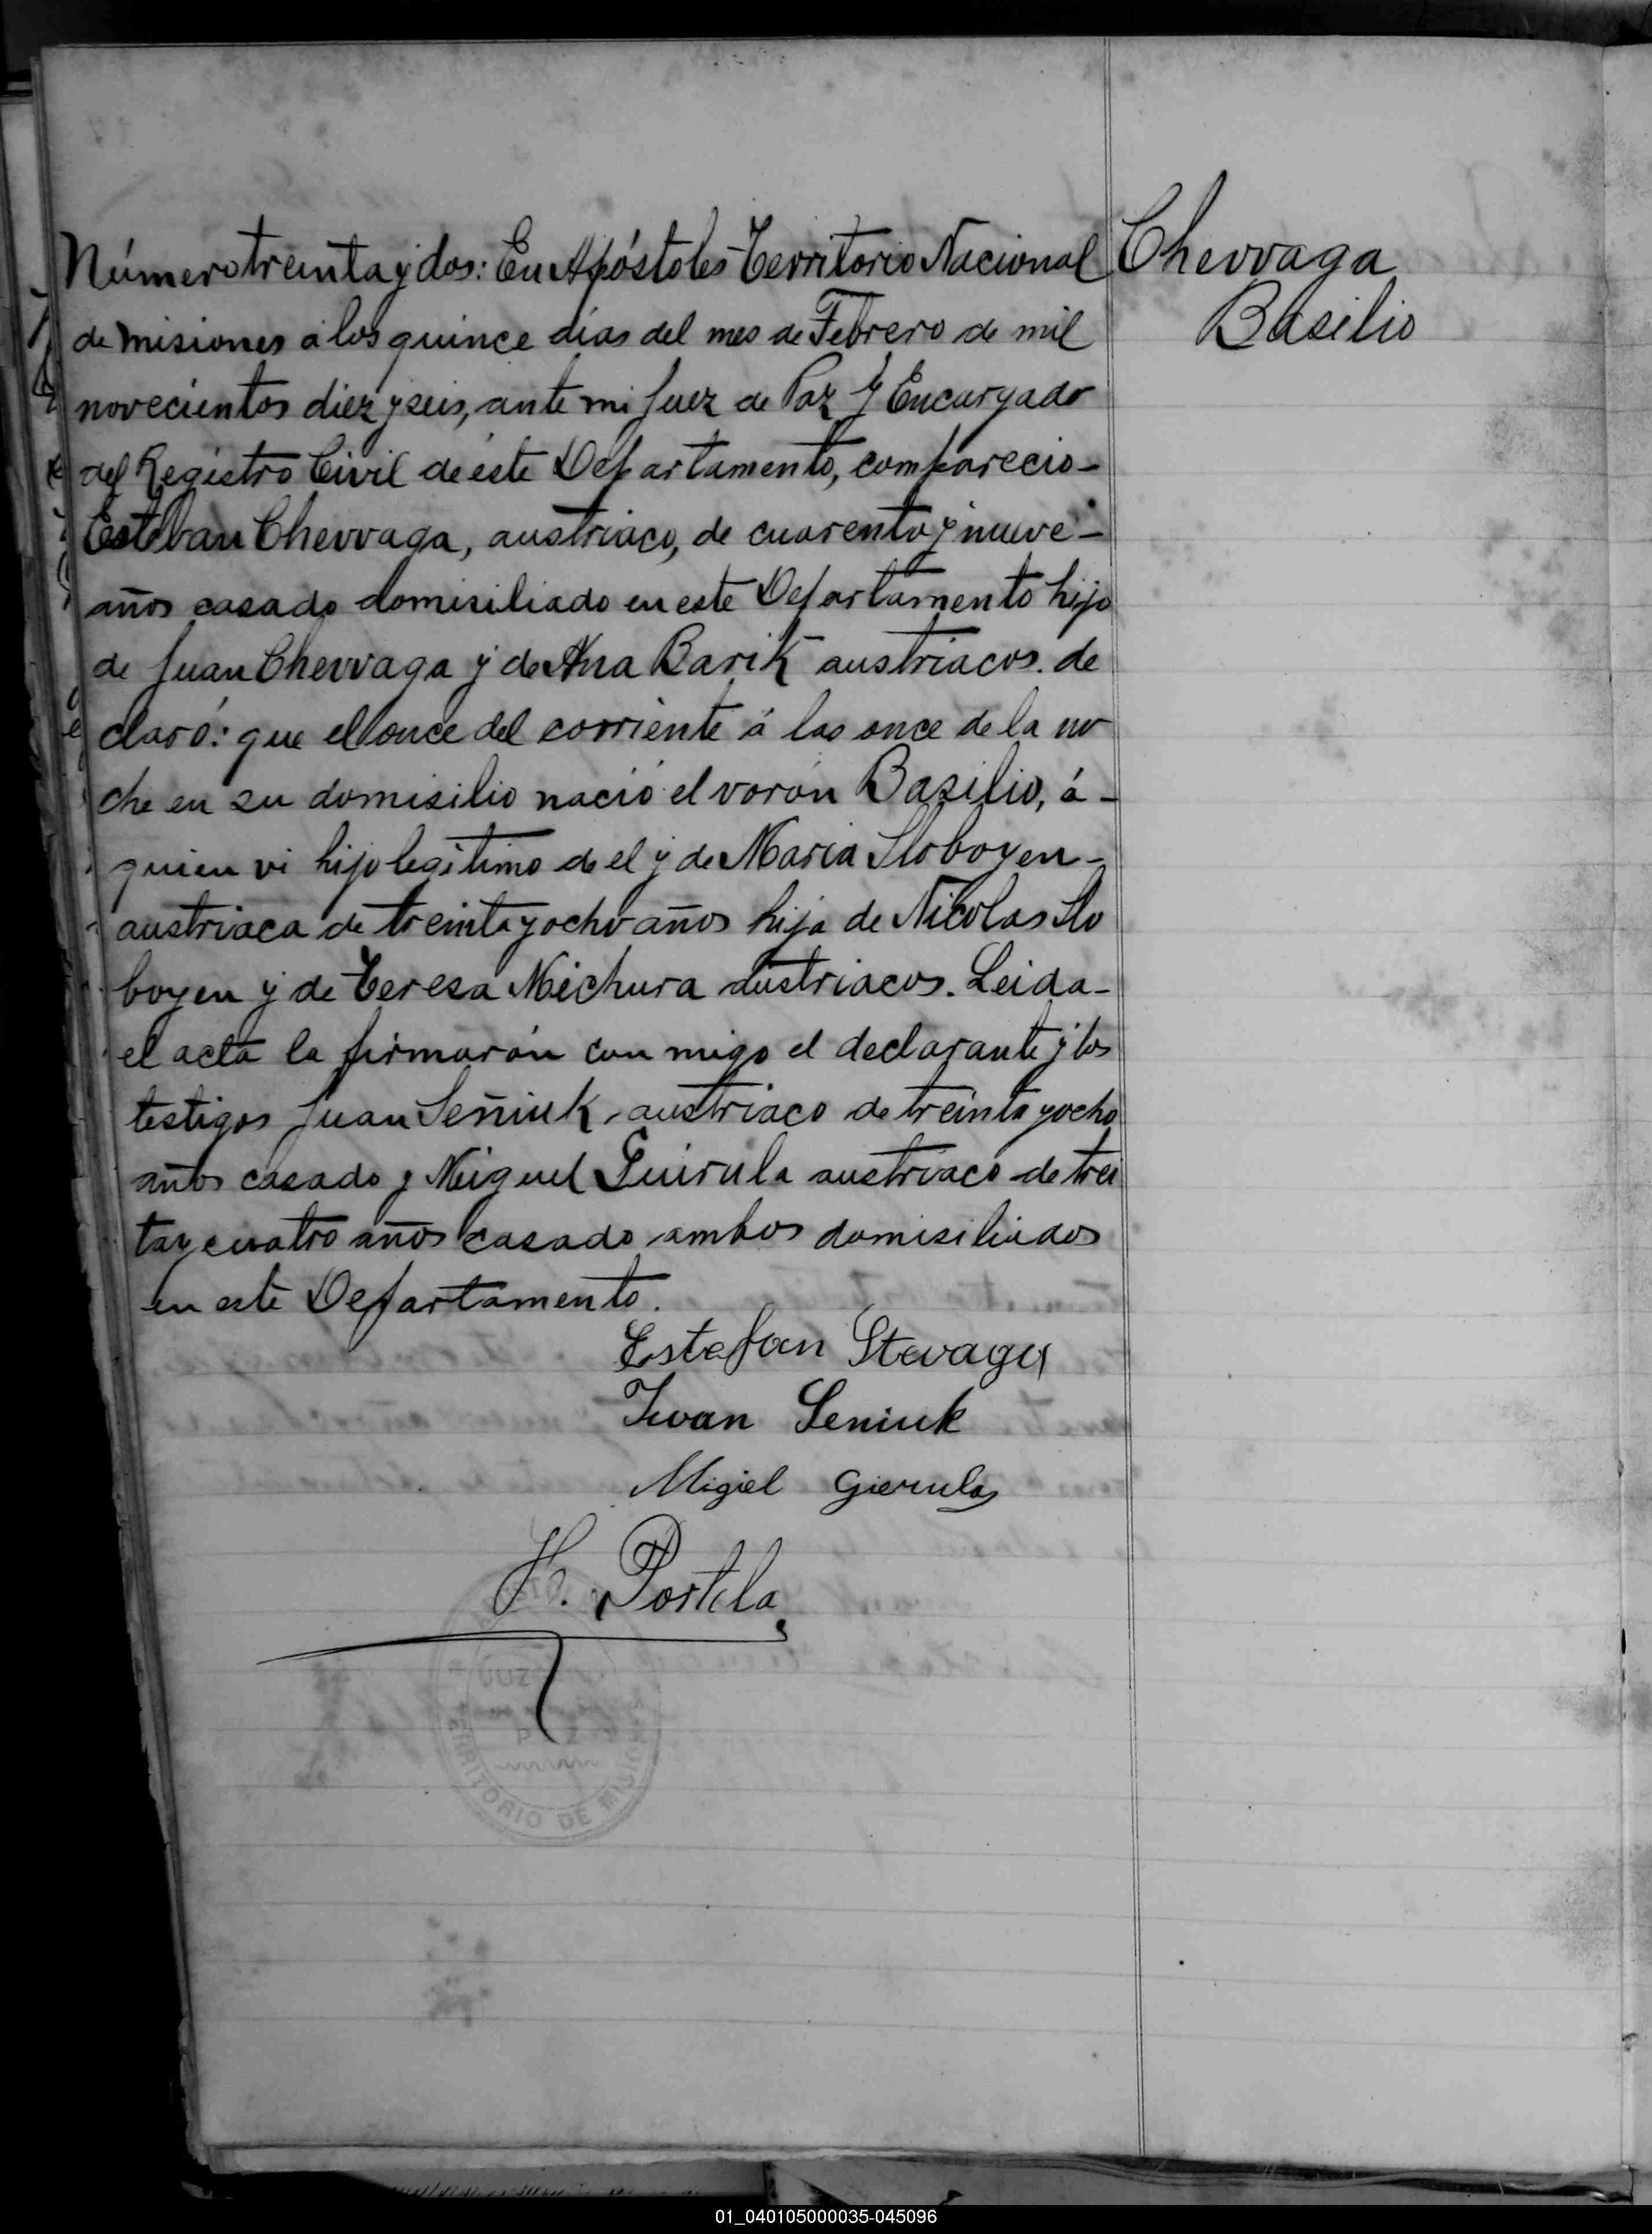 Número treinta y dos: En Apóstoles Territorio Nacional
de misiones á los quince días del mes de Febrero de mil
novecientos diez y seis, ante mi Juez de Paz y Encargado
del Registro Civil de éste Departamento, comparecio-
Esteban Chevvaga, austriaco, de cuarenta y nueve-
años casado domisiliado en este Departamento hijo
de Juan Chevvaga y de Ana Barik austriacos. de
claró: que el once del corriente á las once de la no
che en su domisilio nació el varón Basilio, á-
quien vi hijo legítimo de el y de Maria Sloboyen-
austriaca de treinta y ocho años hija de Nicolas Slo
boyen y de Teresa Michura austriacos. Leida-
el acta la firmarón con migo el declarante y los
testigos Juan Señiuk austriaco de treinta y ocho
años casado y Miguel Guirula austriaco de trei
tay cuatro años casado ambos domisiliados
en este Departamento.
Chevvaga
Basilio
Estefan Stevaga
Iwan Seniuk
Migiel Gierula
H. Portela
JUZ
TERRITORIO DE MISIONES
01_040105000035-045096